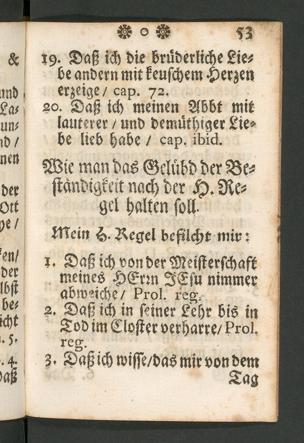 53
19. Daß ich die brüderliche Lie-
be andern mit keuschem Herzen
erzeige / cap. 72.
20. Daß ich meinen Abbt mit
lauterer / und demüthiger Lie-
be lieb habe / cap. ibid.
Wie man das Gelübd der Be-
ständigkeit nach der H. Re-
gel halten soll.
Mein H. Regel befilcht mir:
1. Daß ich von der Meisterschaft
meines HErrn JEsu nimmer
abweiche / Prol. reg.
2. Daß ich in seiner Lehr bis in
Tod im Closter verharre / Prol.
reg.
3. Daß ich wisse / das mir von dem
Tag